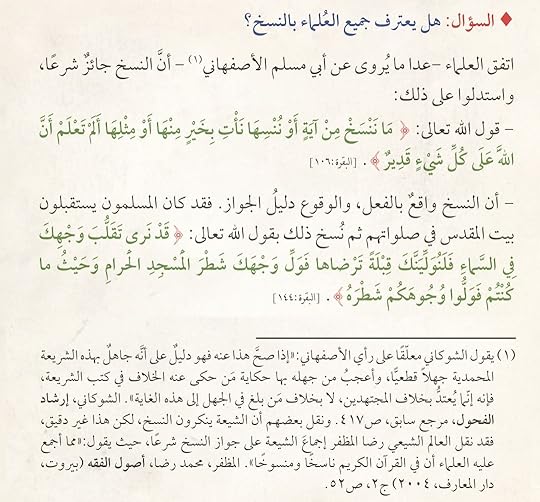 ♦ السؤال: هل يعترف جميع العُلماء بالنسخ؟
اتفق العلماء –عدا ما يُروى عن أبي مسلم الأصفهاني(١) – أنَّ النسخ جائزٌ شرعًا،
واستدلوا على ذلك:
– قول الله تعالى: ﴿ مَا نَنْسَخْ مِنْ آيَةٍ أَوْ نُنْسِهَا نَأْتِ بِخَيْرٍ مِنْهَا أَوْ مِثْلِهَا أَلَمْ تَعْلَمْ أَنَّ
اللهَ عَلَى كُلِّ شَيْءٍ قَدِيرٌ ﴾. [البقرة:١٠٦]
– أن النسخ واقعٌ بالفعل، والوقوع دليلُ الجواز. فقد كان المسلمون يستقبلون
بيت المقدس في صلواتهم ثم نُسخ ذلك بقول الله تعالى: ﴿ قَدْ نَرى تَقَلُّبَ وَجْهِكَ
فِي السَّماءِ فَلَنُوَلِّيَنَّكَ قِبْلَةً تَرْضاها فَوَلِّ وَجْهَكَ شَطْرَ الْمَسْجِدِ الْحَرامِ وَحَيْثُ ما
كُنْتُمْ فَوَلُّوا وُجُوهَكُمْ شَطْرَهُ ﴾. [البقرة:١٤٤]
(١) يقول الشوكاني معلّقًا على رأي الأصفهاني: «إذا صحَّ هذا عنه فهو دليلٌ على أنَّه جاهلٌ بهذه الشريعة
المحمدية جهلًا قطعيًّا، وأعجبُ من جهله بها حكاية مَن حكى عنه الخلاف في كتب الشريعة،
فإنه إنّما يُعتدُّ بخلاف المجتهدين، لا بخلاف مَن بلغ في الجهل إلى هذه الغاية». الشوكاني، إرشاد
الفحول، مرجع سابق، ص٤١٧. ونقل بعضهم أن الشيعة ينكرون النسخ، لكن هذا غير دقيق،
فقد نقل العالم الشيعي رضا المظفر إجماعَ الشيعة على جواز النسخ شرعًا، حيث يقول: «مما أجمع
عليه العلماء أن في القرآن الكريم ناسخًا ومنسوخًا». المظفر، محمد رضا، أصول الفقه (بيروت،
دار المعارف، ٢٠٠٤) ج٢، ص٥٢.